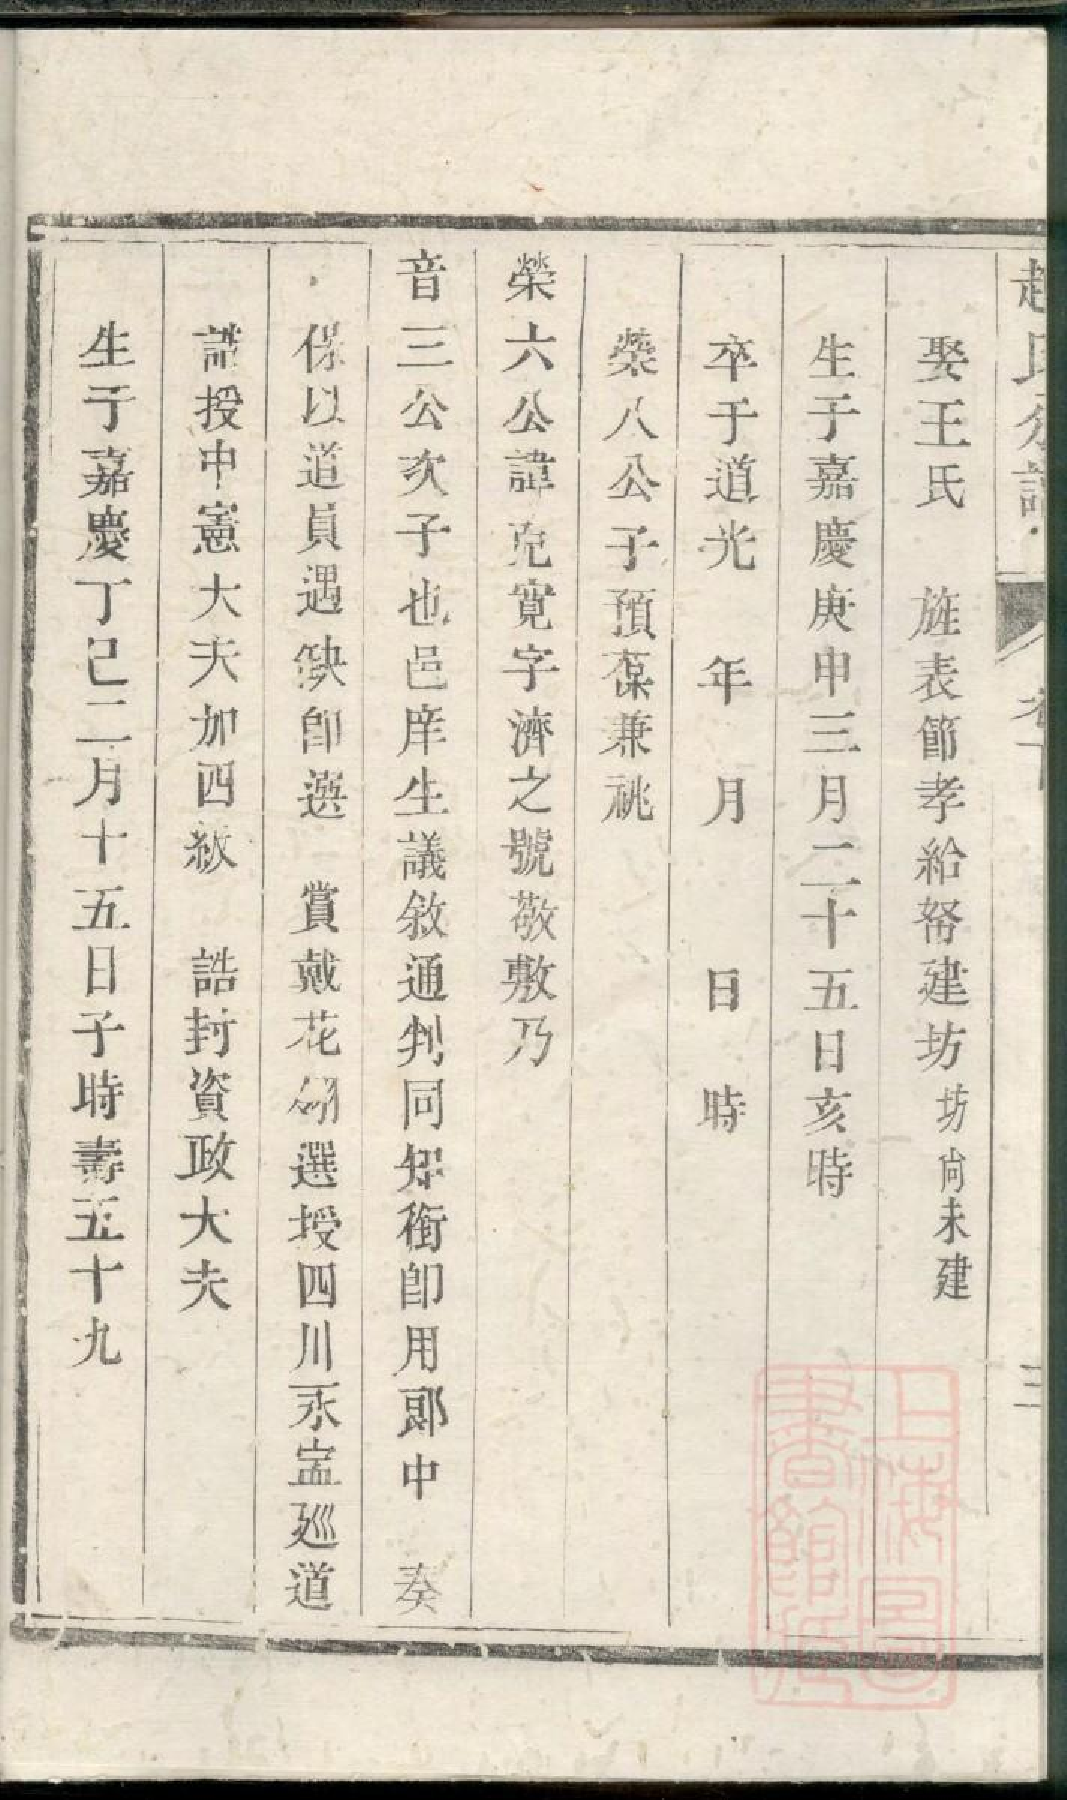 趙氏分譜 卷下 三
娶王氏 旌表節孝給帑建坊坊尙未建
生于嘉慶庚申三月二十五日亥時
卒于道光 年 月 日 時
榮八公子預葆兼祧
榮六公諱克寬字濟之號敬敷乃
音三公次子也邑庠生議敘通判同知銜卽用郞中 奏
保以道員遇缺卽選 賞戴花翎選授四川永寍廵道
誥授中憲大夫加四級 誥封資政大夫
生于嘉慶丁巳二月十五日子時壽五十九
上海圖書館藏